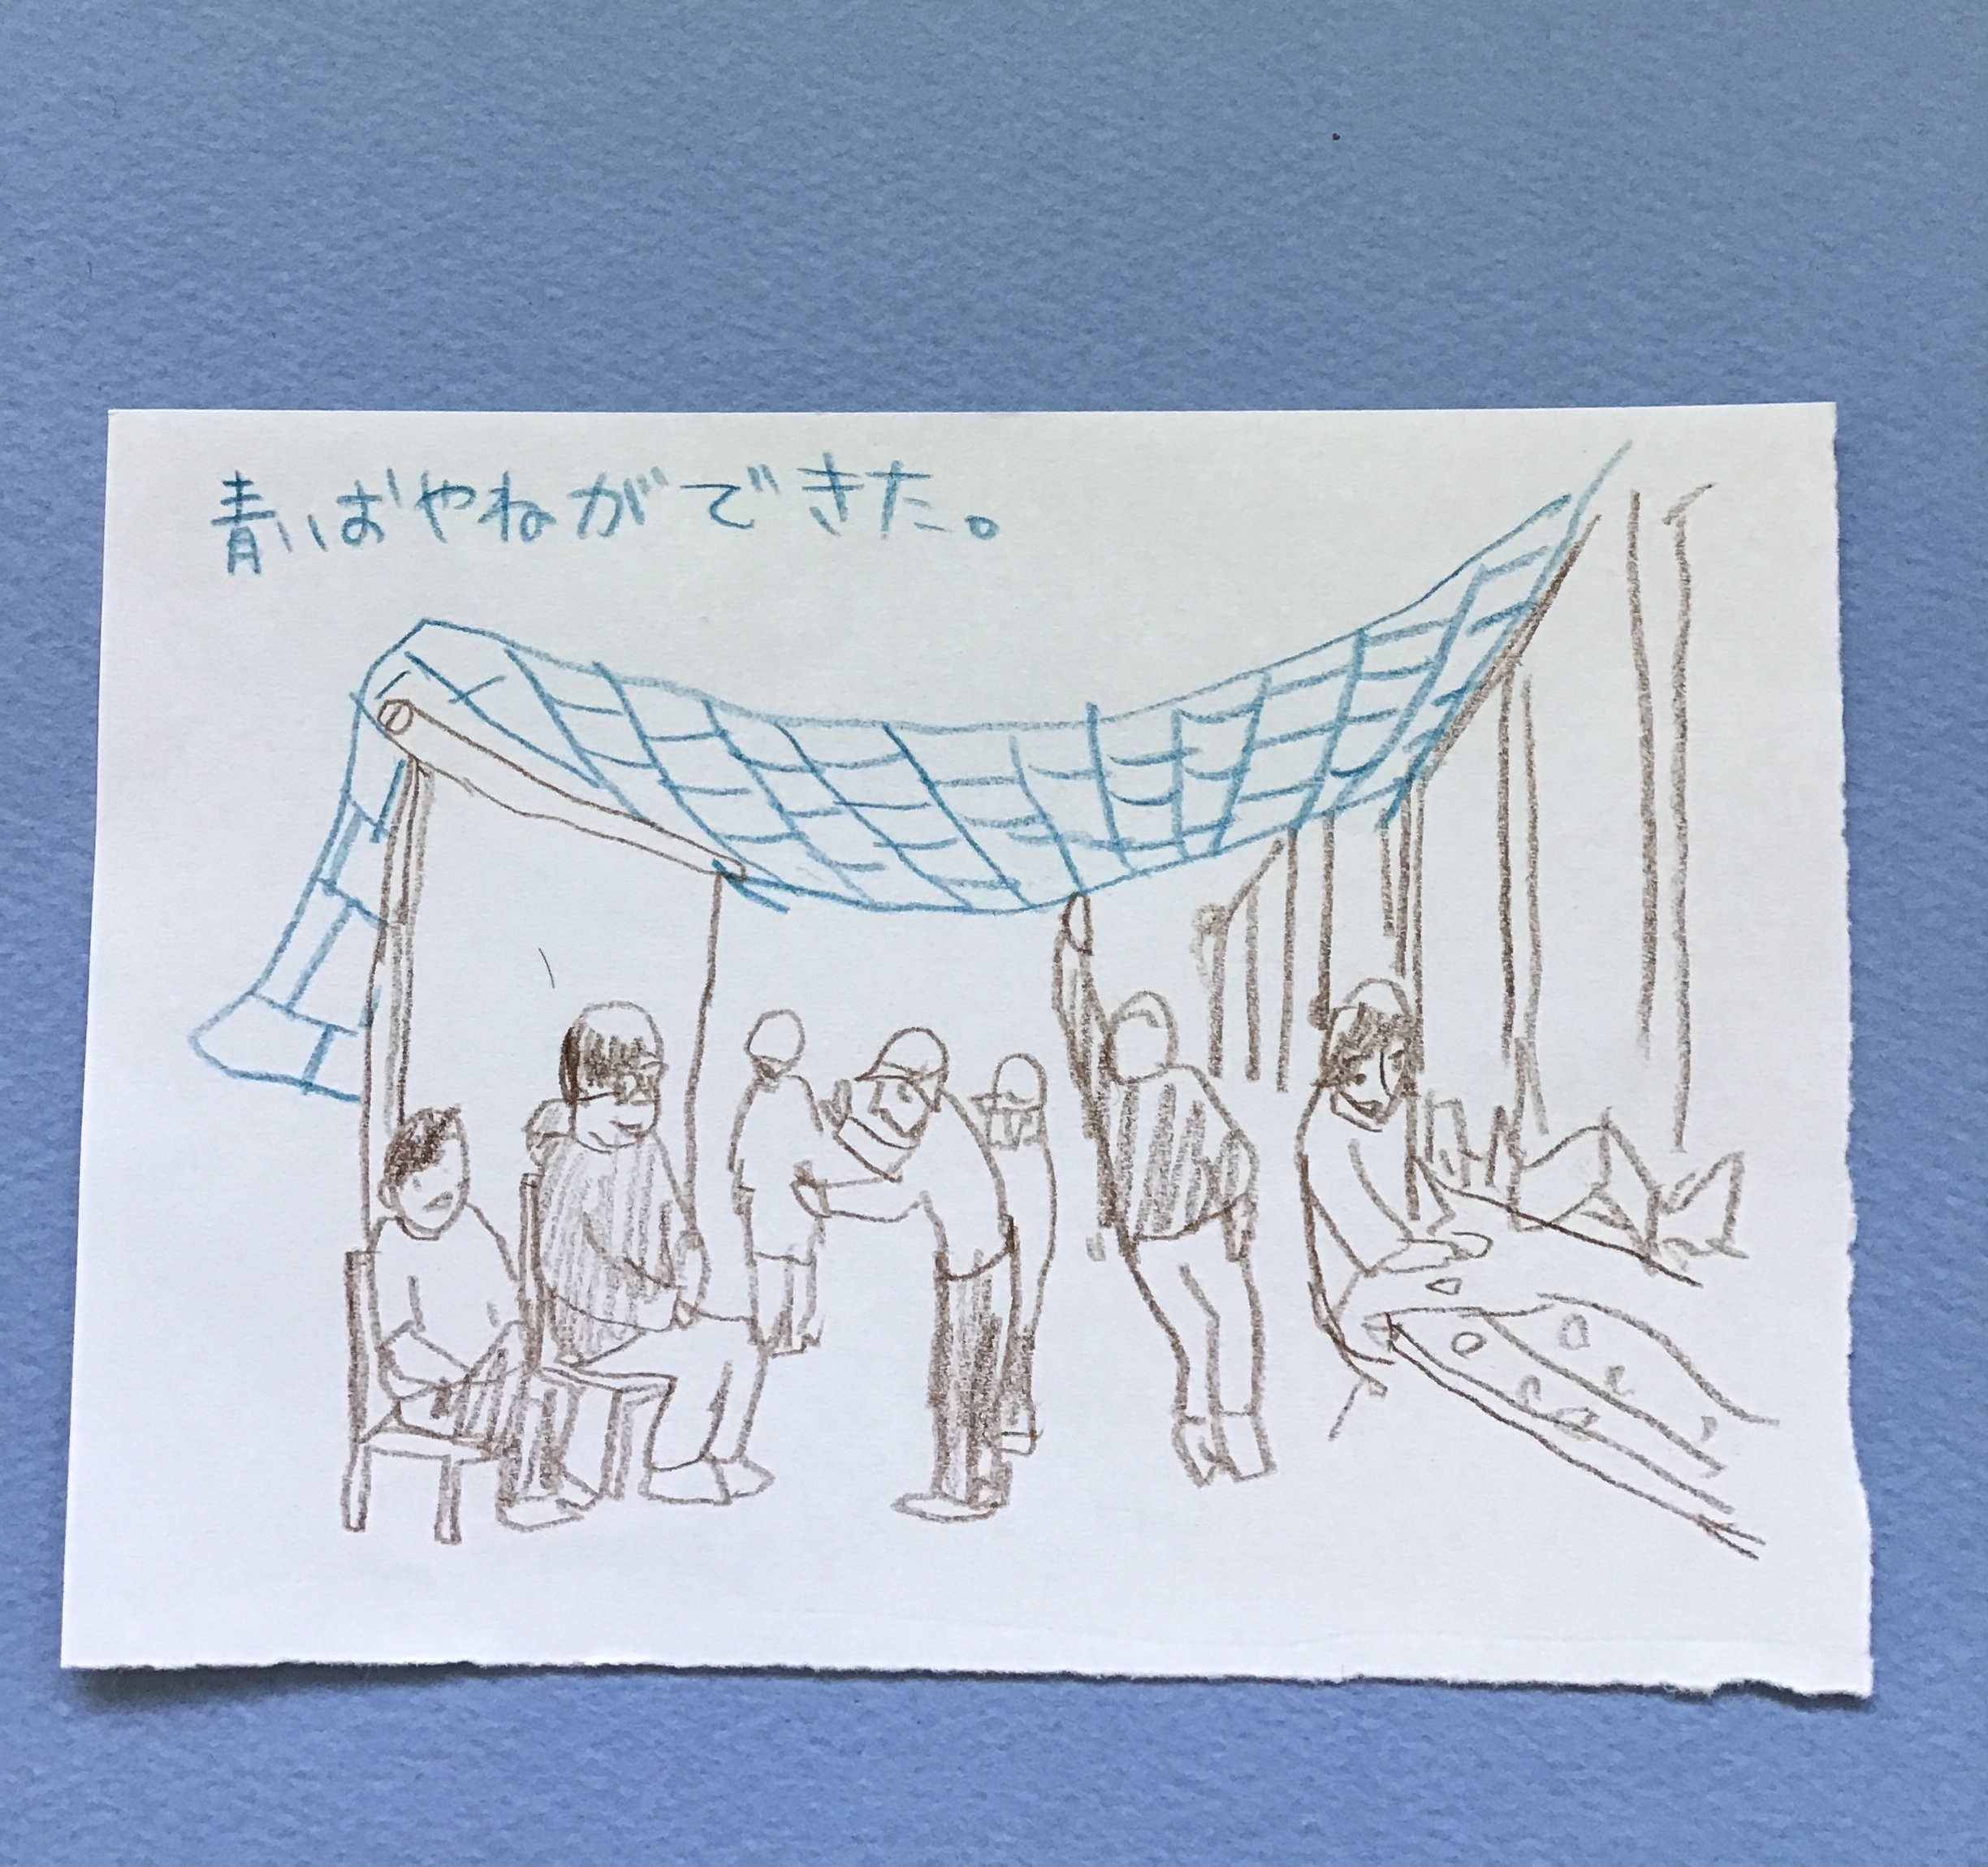 青いおやねができた。